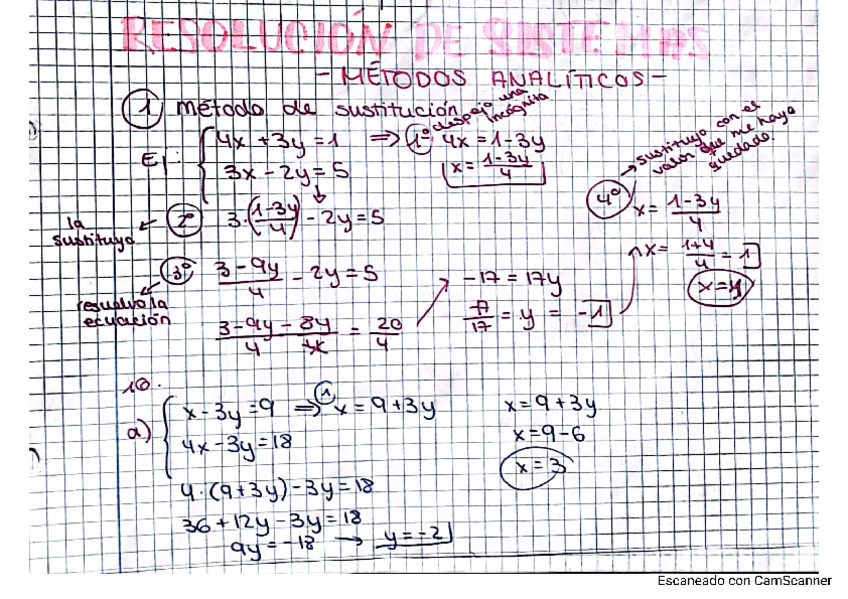 RESOLUCIÓN DE SISTEMAS
- MÉTODOS ANALÍTICOS -
① método de sustitución
Ej: { 4x + 3y = 1 ⇒ 1º despejo una incógnita 4x = 1 - 3y
3x - 2y = 5
x = (1-3y)/4
la sustituyo ← 2º 3·((1-3y)/4) - 2y = 5
3º (3-9y)/4 - 2y = 5
resuelvo la ecuación
(3-9y-8y)/4 = 20/4
-17 = 17y
17/17 = y = -1
4º → sustituyo con el valor que me haya quedado.
x = (1-3y)/4
x = (1+4)/4 = 1
x = y
10.
a) { x - 3y = 9 ⇒ ① x = 9 + 3y
4x - 3y = 18
4·(9+3y) - 3y = 18
36 + 12y - 3y = 18
9y = -18 → y = -2
x = 9 + 3y
x = 9 - 6
x = 3
Escaneado con CamScanner